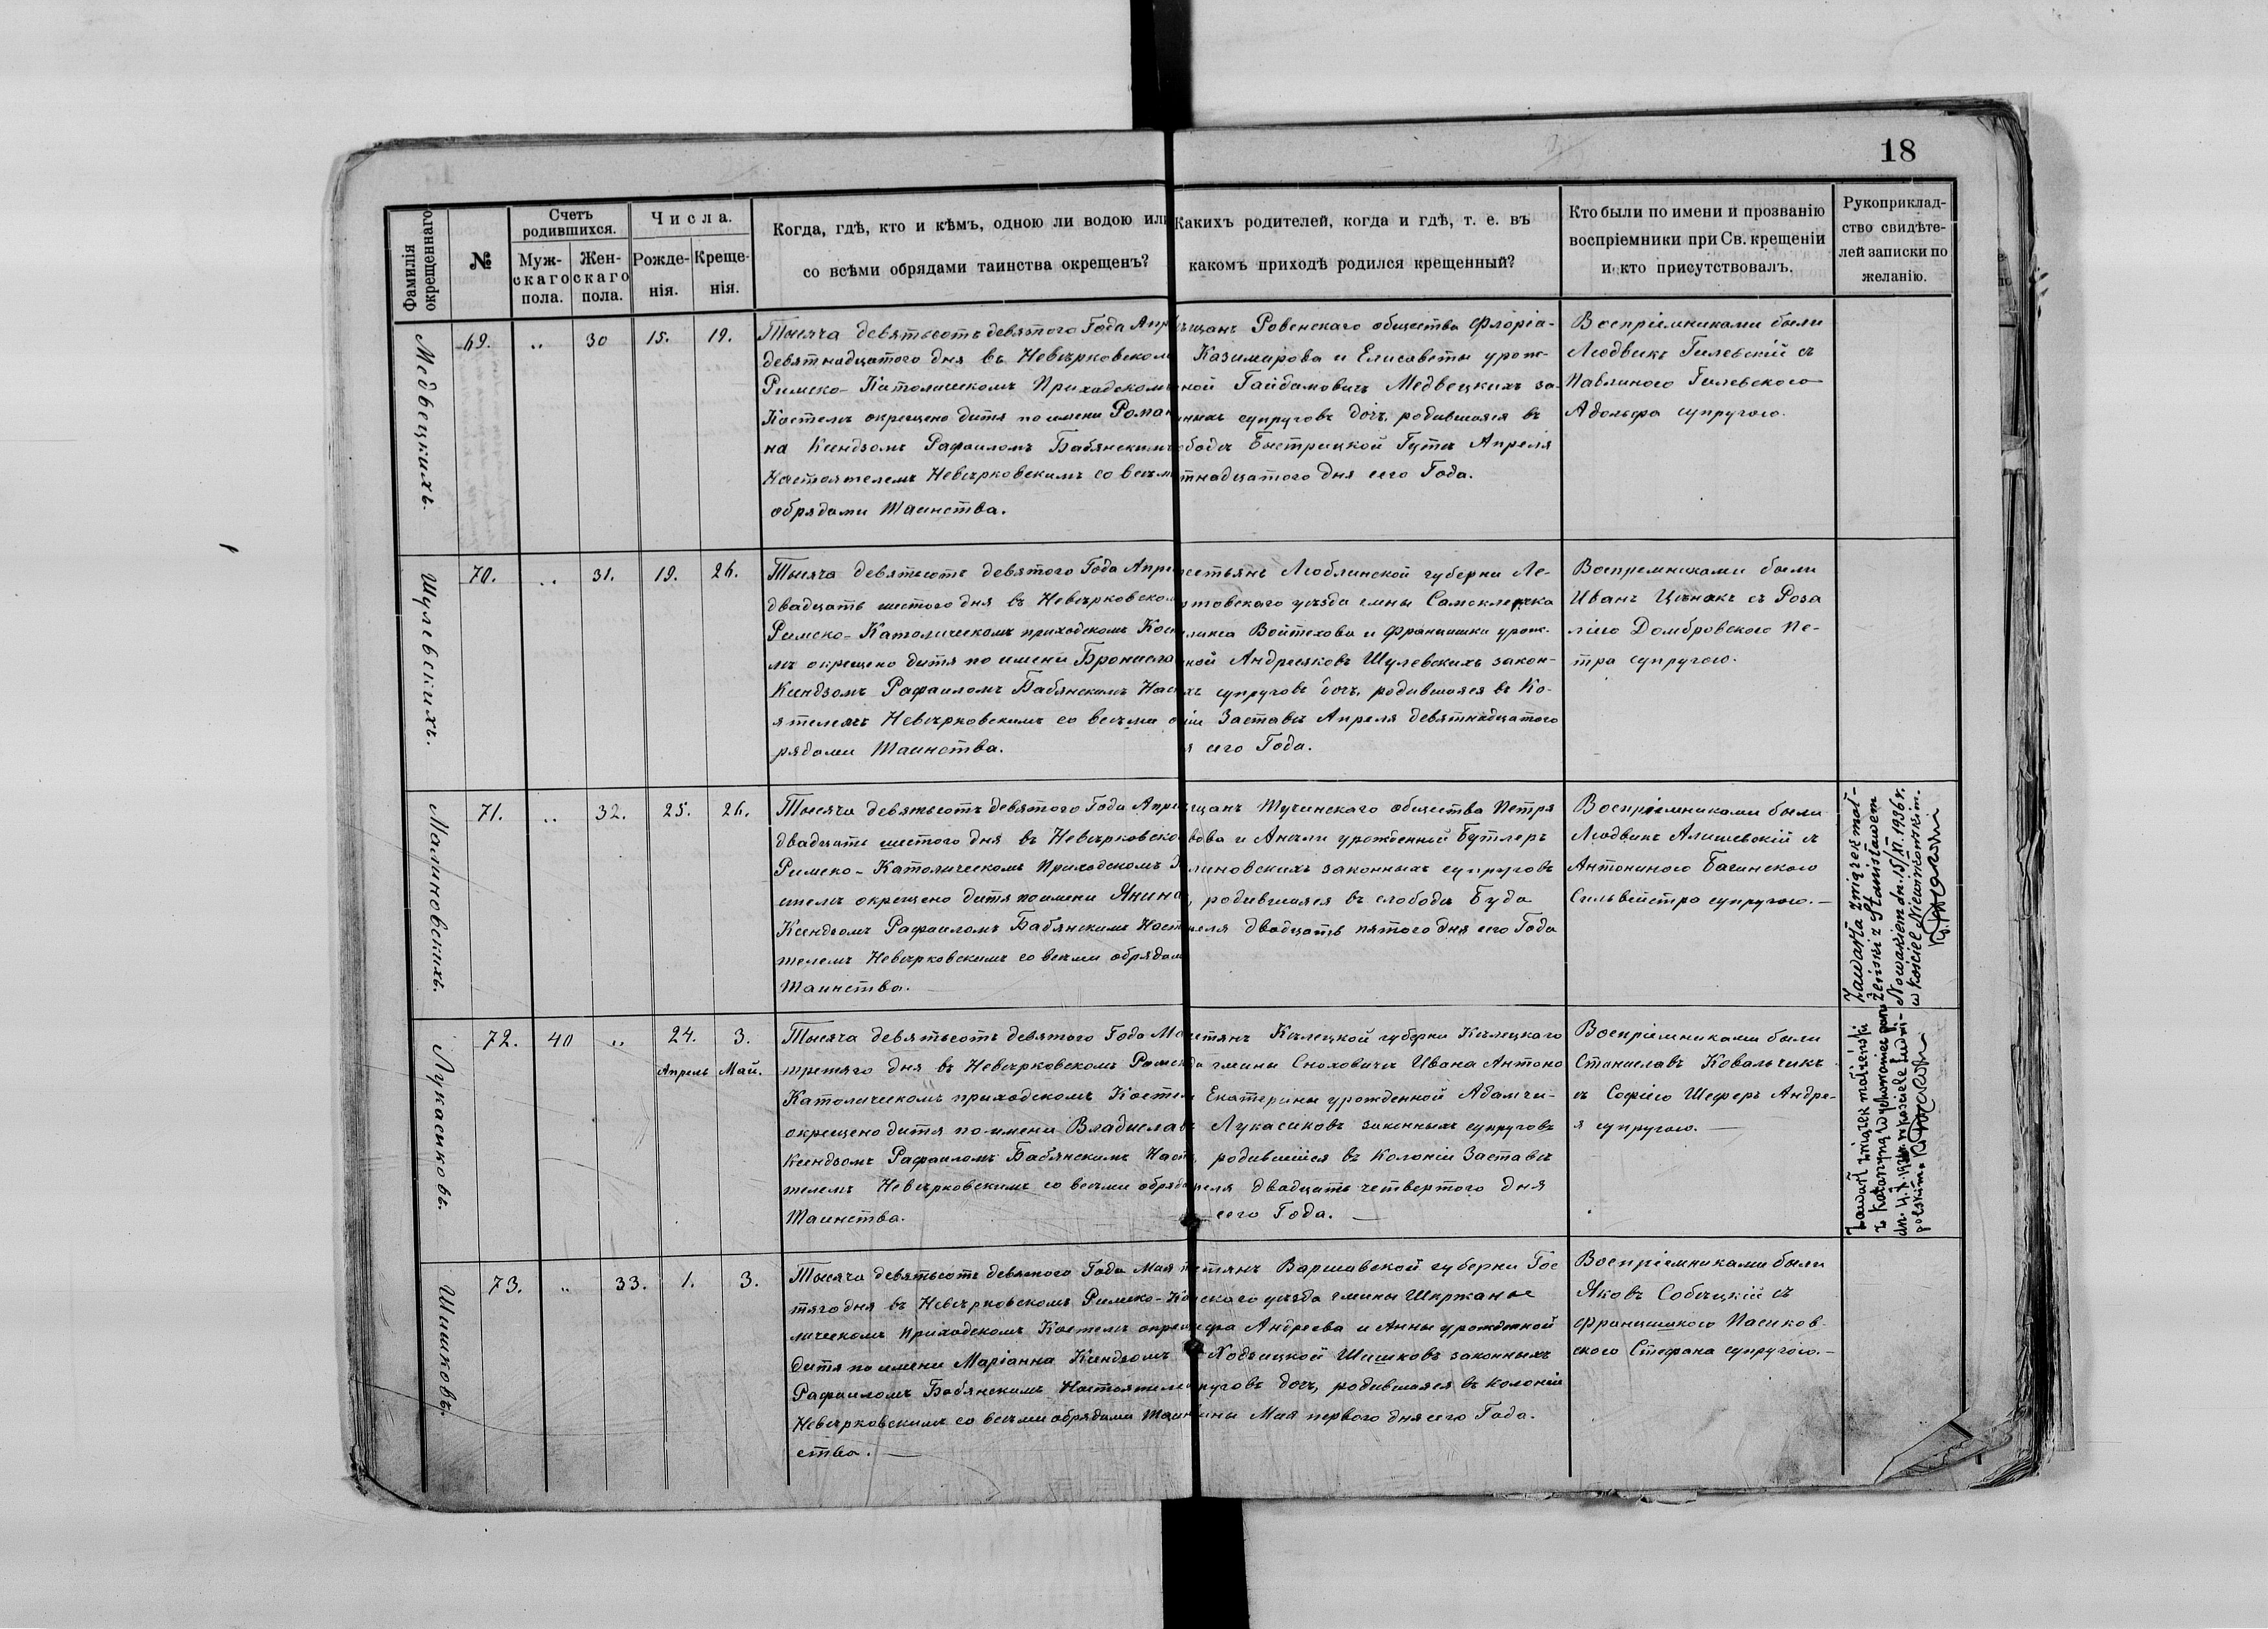 18
Фамилія окрещеннаго
№
Счетъ родившихся.
Муж-скаго пола.
Жен-скаго пола.
Числа.
Рожде-нія.
Креще-нія.
Когда, гдѣ, кто и кѣмъ, одною ли водою или
со всѣми обрядами таинства окрещенъ?
Какихъ родителей, когда и гдѣ, т. е. въ
какомъ приходѣ родился крещенный?
Кто были по имени и прозванію
воспріемники при Св. крещеніи
и кто присутствовалъ.
Рукоприклад-
ство свидѣте-
лей записки по
желанію.
Медвецкихъ.
69. „ 30 15. 19.
Тысяча девятьсотъ девятого Года Апр
девятнадцатого дня въ Невѣрковском
Римско-Католическомъ Приходскомъ
Костелѣ окрещено дитя по имени Роман
на Ксендзомъ Рафаиломъ Бабянскимъ
Настоятелемъ Невѣрковскимъ со всѣм
обрядами Таинства.
ѣщанъ Ровенскаго общества Флоріа-
Казимирова и Елисаветы урож-
ной Гайдамовичъ Медвецкихъ за-
нныхъ супруговъ дочь, родившаяся въ
ободѣ Быстрицкой Гутѣ Апреля
тнадцатого дня сего Года.
Воспріемниками были
Людвикъ Гилевскій съ
Павлиною Гилевского
Адольфа супругою.
Шулевскихъ.
70. „ 31. 19. 26.
Тысяча девятьсотъ девятого Года Апре
двадцать шестого дня въ Невѣрковском
Римско-Католическомъ приходскомъ Кост
лѣ окрещено дитя по имени Бронисла
Ксендзомъ Рафаиломъ Бабянскимъ Наст
ятелемъ Невѣрковскимъ со всѣми об
рядами Таинства.
естьянъ Люблинской губерни Лю-
ртовскаго уѣзда гмины Самоклеска
Войтехова и Францишки урож.
ной Андресяковъ Шулевскихъ закон-
хъ супруговъ дочь, родившаяся въ Ко-
ніи Заставѣ Апреля девятнадцатого
я сего Года.
Воспремниками были
Иванъ Цѣнакъ съ Роза
ліею Домбровского Пе-
тра супругою.
Малиновскихъ.
71. „ 32. 25. 26.
Тысяча девятьсотъ девятого Года Апре
двадцать шестого дня въ Невѣрковско
Римско-Католическомъ Приходскомъ К
стелѣ окрещено дитя по имени Янина
Ксендзомъ Рафаиломъ Бабянскимъ Наст
телемъ Невѣрковскимъ со всѣми обрядам
Таинства.
щанъ Тучинскаго общества Петра
вова и Анѣли урожденной Бутлеръ
линовскихъ законныхъ супруговъ
, родившаяся въ слободѣ Буда
реля двадцать пятого дня сего Года
Воспріемниками были
Людвикъ Алишевскій съ
Антониною Багинского
Сильвестра супругою.—
Zawarła związek mał-
żeński z Stanisławem
Nowakiem dn. 15/XI. 1936 r.
w kościel. Niewirkowskim.
Лукасиковъ.
72. 40 „ 24. 3.
Апрель Май.
Тысяча девятьсотъ девятого Года Ма
третяго дня въ Невѣрковскомъ Римско
Католическомъ приходскомъ Костел
окрещено дитя по имени Владиславъ
Ксендзомъ Рафаиломъ Бабянскимъ Наст
телемъ Невѣрковскимъ со всѣми обряда
Таинства.
стянъ Кѣлецкой губерни Кѣлецкого
да гмины Сноховичи Ивана Антоно
Екатерины урожденной Адамчи-
Лукасиковъ законныхъ супруговъ
, родившійся въ Колоніи Заставѣ
реля двадцать четвертого дня
сего Года.—
Воспріемниками были
Станиславъ Ковальчикъ
съ Софіею Шеферъ Андре-
я супругою.—
Zawarł związek małżeński
z Katarzyną
w kościele Ludwi-
polskim.
Шишковъ.
73. „ 33. 1. 3.
Тысяча девятьсотъ девятого Года Мая т
тяго дня въ Невѣрковскомъ Римско-Ка
лическомъ приходскомъ Костелѣ окреще
дитя по имени Маріанна Ксендзомъ
Рафаиломъ Бабянскимъ Настоятеле
Невѣрковскимъ со всѣми обрядами Таин
ства.—
стянъ Варшавской губерни Гос
скаго уѣзда гмины
Андреева и Анны урожденной
Ходзицкой Шишковъ законныхъ
руговъ дочь, родившаяся въ колоніи
Мая первого дня сего Года.
Воспріемниками были
Яковъ Собѣцкій съ
Францишкою Пасиков-
ского Стефана супругою.—